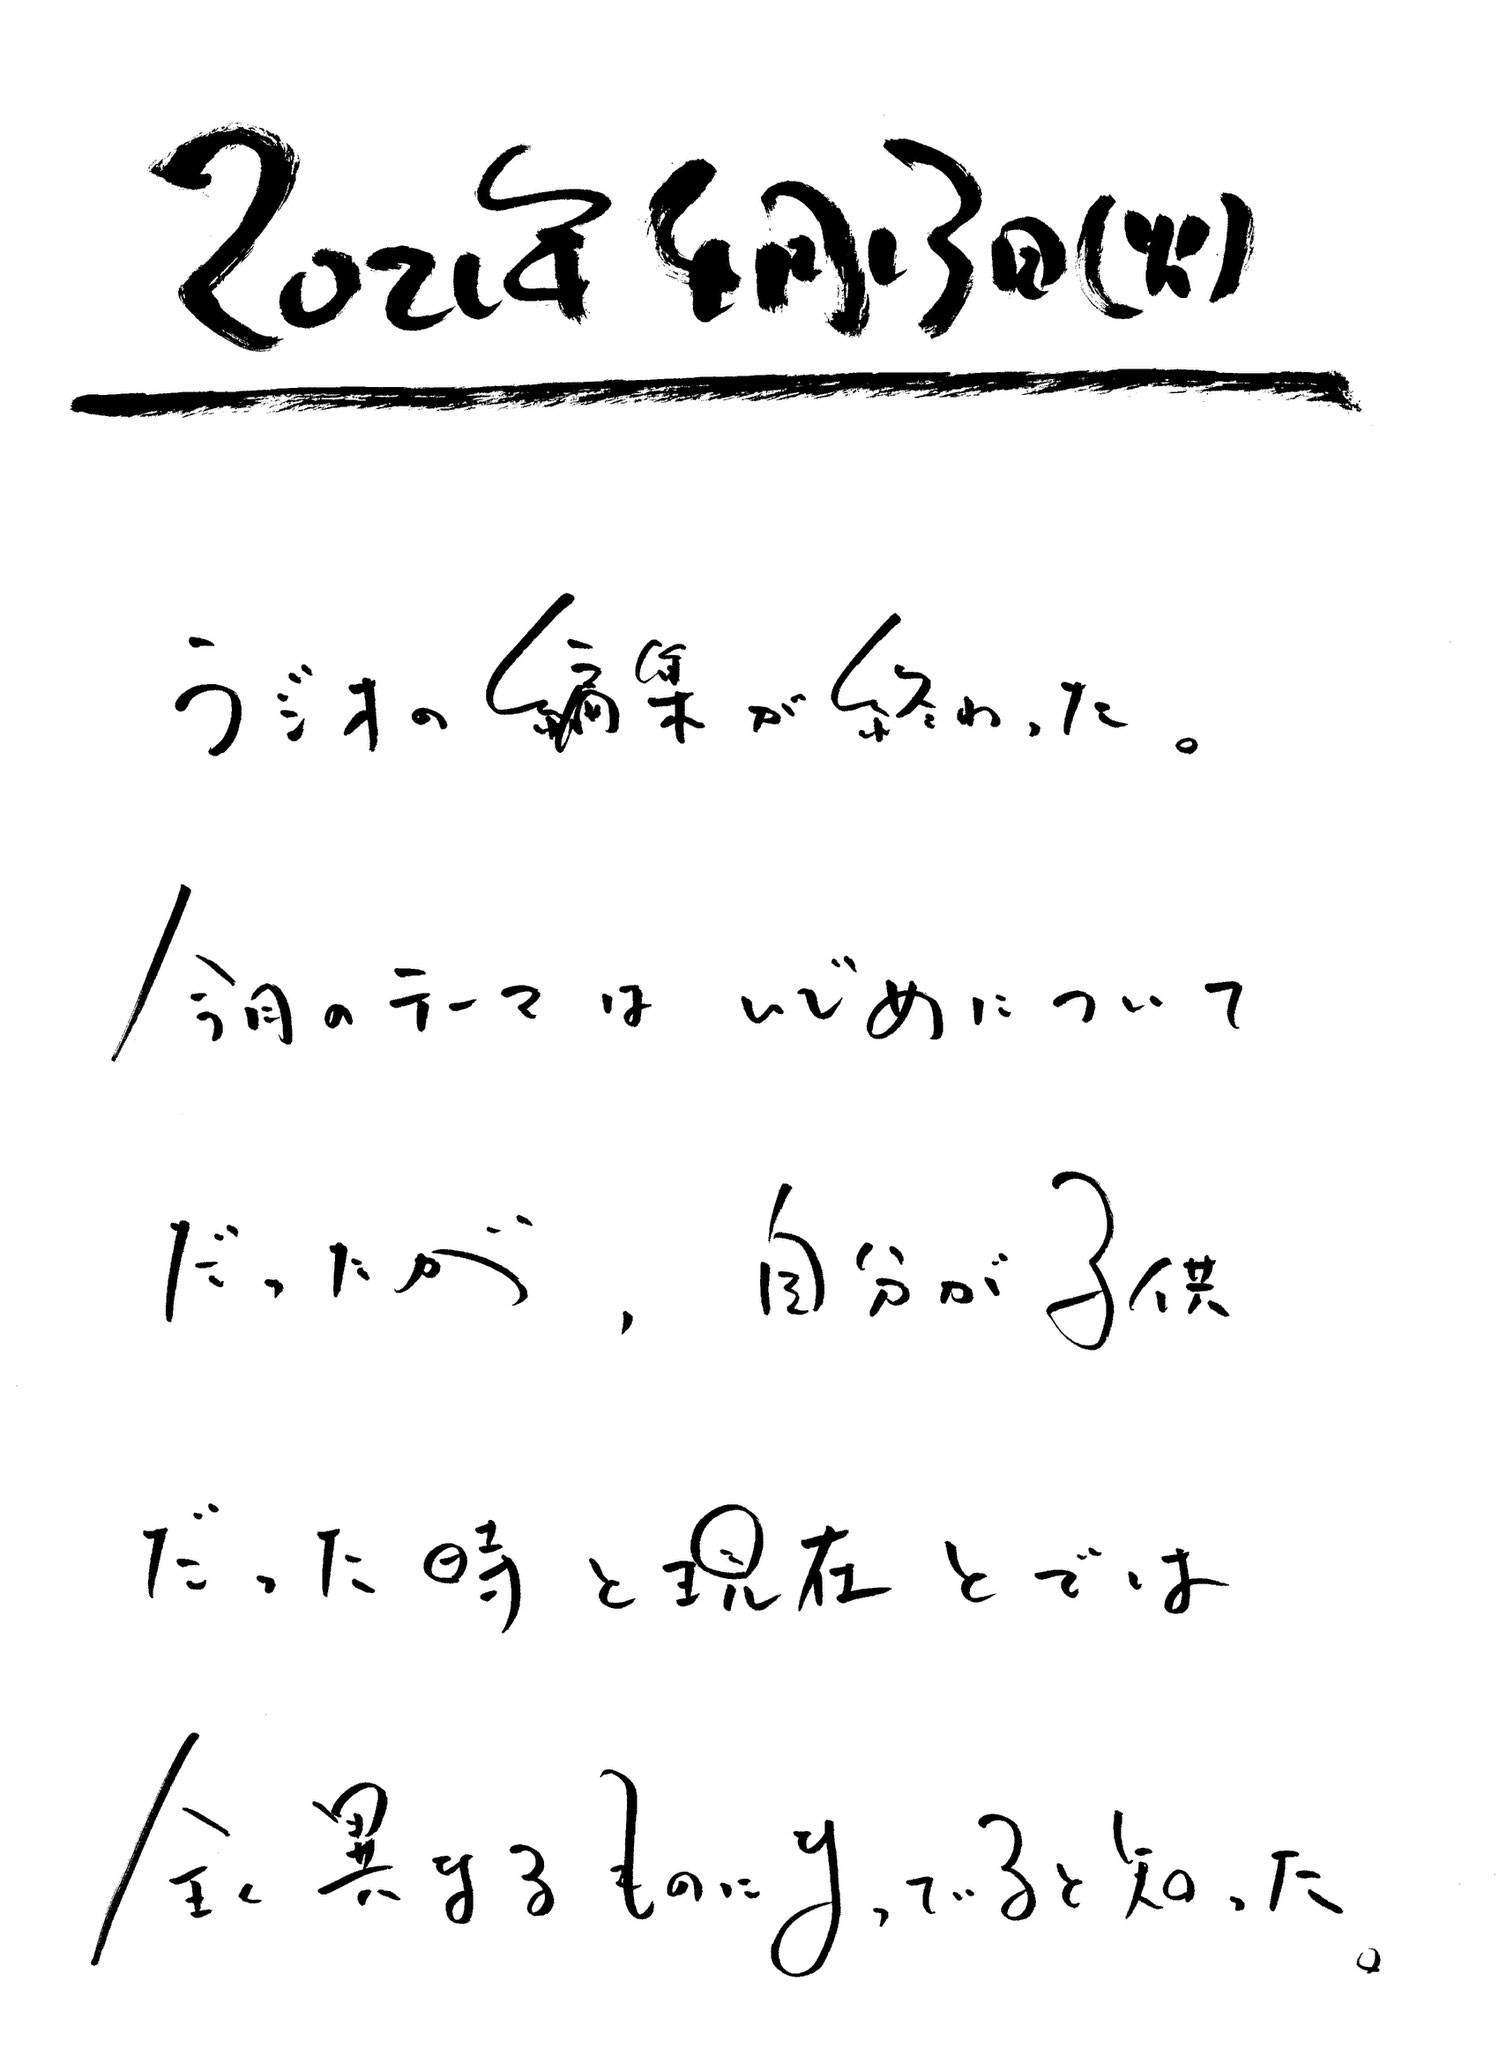 2021年4月13日(火)
ラジオの編集が終わった。
今月のテーマはいじめについて
だったが、自分が子供
だった時と現在とでは
全く異なるものになってると知った。